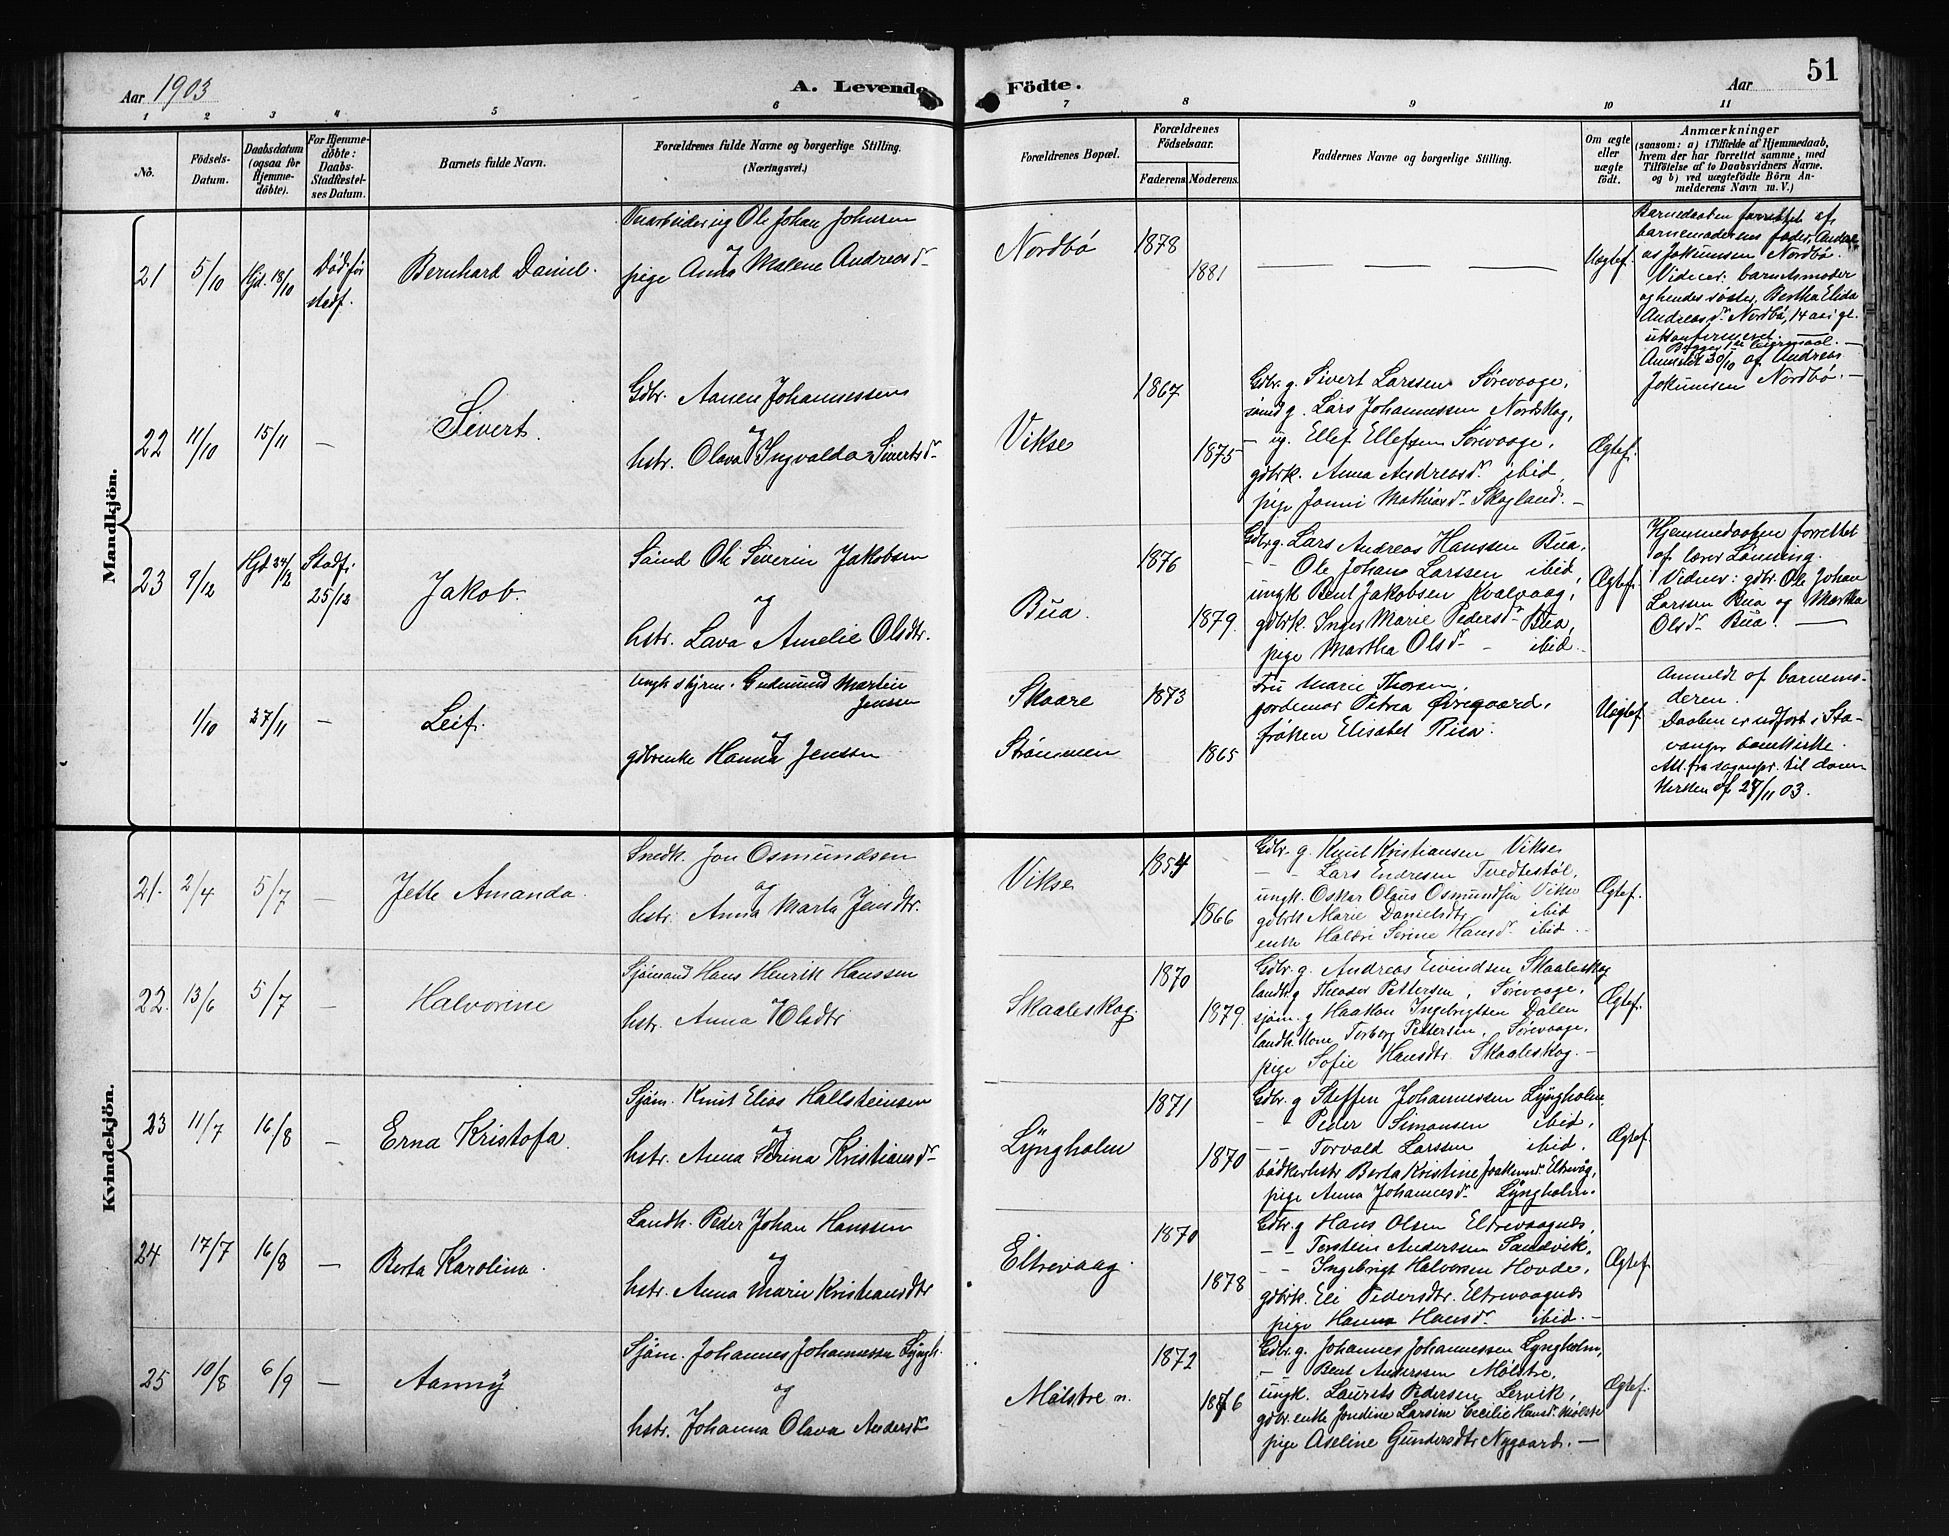 Aar 1903
A. Levende Födte.
Aar
51
1 2 3 4 5 6 7 8 9 10 11
No.
Födsels-
Datum.
Daabsdatum
(ogsaa for
Hjemme-
döbte).
For Hjemme-
döbte:
Daabs-
Stadfæstel-
ses Datum.
Barnets fulde Navn.
Forældrenes fulde Navne og borgerlige Stilling.
(Næringsvei.)
Forældrenes Bopæl.
Forældrenes
Födselsaar.
Faderens.
Moderens.
Faddernes Navne og borgerlige Stilling.
Om ægte
eller
uægte
födt.
Anmærkninger
(saasom: a) i Tilfælde af Hjemmedaab,
hvem der har forrettet samme, med
Tilföielse af to Daabsvidners Navne.
og b) ved uægtefödte Börn An-
melderens Navn m. V.)
Mandkjön.
21
5/10
Hjd. 18/10
Död før
stadf.
Bernhard Daniel.
Ole Johan Johnsen
og
pige Anna Malene Andreasdr
Nordbö
1878
1881
— — —
Uægtef.
Barnedaaben forrettet af
barnemoderens fader, Andre-
as Jokumsen Nordbö.
Vidner: barnets moder
og hendes söster, Bertha Elida
Andreasdr Nordbö, 14 aar gl.
ukonfirmeret.
Anmeldt 30/10 af Andreas
Jokumsen Nordbö. —
22
11/10
15/11
—
Sivert.
Gdbr. Aanen Johannessen
og
hstr. Olava Ingvalda Sivertsdr
Vikse
1867
1875
Gdbr. g. Sivert Larssen Sörevaage,
sömd g. Lars Johannessen Nordskog,
— ug. Ellef Ellefsen Sörevaage,
gdbrk. Anna Andreasdr ibid.
pige Jonni Mathiasdr Skogland. —
Ægtef.
23
9/12
Hjd. 24/12
Stadf.
25/12
Jakob.
Sömd Ole Severin Jakobsen
og
hstr. Lava Amelie Olsdtr.
Bua.
1876
1879.
Gdbr g. Lars Andreas Hanssen Bua,
- - Ole Johan Larssen ibid,
ungk. Bent Jakobsen Kvalvaag,
gdbrk. Inger Marie Pedersdr Bua,
pige Martha Olsdr — ibid.
Ægtef.
Hjemmedaaben forrettet
af lærer Lönning.
Vidner: gdbr. Ole Johan
Larssen Bua og Martha
Olsdr Bua. —
1/10
27/11
—
Leif.
Ungk. styrm. Gudmund Martin
Jenssen
og
gdbrenke Hanna Jenssen
Skaare
Strömmen
1873
1865
Fru Marie Thorsen,
jordemor Petria Øvregaard,
fröken Elisabet Riisa.
Uægtef.
Anmeldt af barnemo-
deren.
Daaben er udfört i Sta-
vanger domkirke.
Att. fra sognepr. til dom-
kirken af 27/11 03.
Kvindekjön.
21.
2/4
5/7
—
Jette Amanda.
Snedk. Jon Osmundsen
og
hstr. Anna Marta Jensdtr.
Vikse
1854
1866
Gdbr. g. Knut Kristiansen Vikse
- - Lars Endresen Tvedtestöl,
ungk. Oskar Olaus Osmundsen Vikse
gdbrk Marie Danielsdtr ibid
enke Serine Hansdr ibid. —
Ægtef.
22.
13/6
5/7
—
Halvorine
Sjömand Hans Henrik Hanssen
og
hstr. Anna Olsdtr
Skaaleskog.
1870
1879.
Gdbr. g. Andreas Eivindsen Skaaleskog
landh. g Theodor Pettersen, Sörevaage,
sjöm. g Haakon Ingebrigtsen Dalen
landh. kone Torborg Pettersen, Sörevaage,
pige Sofie Hansdtr. Skaaleskog. —
Ægtef.
23
11/7
16/8
—
Erna Kristofa.
Sjöm. Knut Elias Hallsteinsen
og
hstr. Anna Serina Kristiansdr
Lyngholm
1871
1870
Gdbr. g Steffen Johannessen Lyngholm,
- - Peder Simonsen ibid,
- - Torvald Larssen ibid.
bödkerhstr Berta Kristine Eltrevåg,
pige Anna Johannesdr. Lyngholm.
Ægtef.
24
17/7
16/8
—
Berta Karolina.
Landh. Peder Johan Hanssen
og
hstr. Anna Marie Kristiansdtr
Eltrevaag.
1870
1878
Gdbr. g Hans Olsen Eltrevaagnæs,
- - Torstein Andersen Sandvik,
- - Ingebrigt Halvorsen Hovde,
gdbrk. Eli Pedersdtr. Eltrevaagnæs
pige Hanna Hansdr. ibid. —
Ægtef.
25
10/8
6/9
—
Aanny
Sjöm. Johannes Johannessen Lyngh.
og
hstr. Johanna Olava Andersdr
Mölstre n.
1872
1876
Gdbr. g. Johannes Johannessen Lyngholm,
- Bent Anderssen Mölstre,
ungk. Laurits Pedersen Lervik,
gdbr. enke Jondine Larsine Cecilie Hansdr. Mölstre
pige Aseline Gundersdtr Nygaard. —
Ægtef.